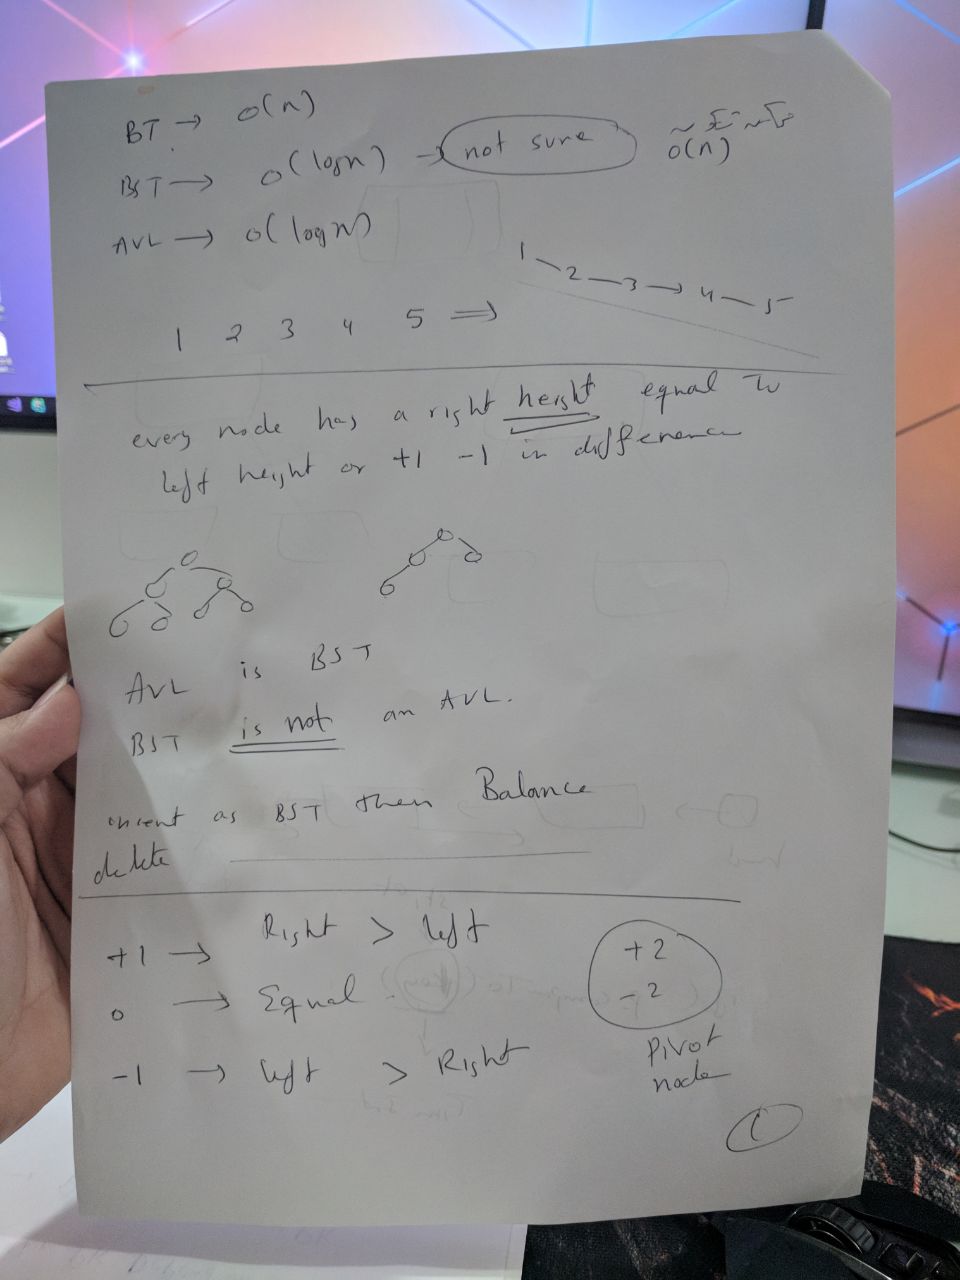 BT → O(n)
BST → O(log n) → not sure
O(n)
AVL → O(log n)
1 2 3 4 5 ⇒ 1 2 3 → 4 5
every node has a right height equal to
left height or +1 -1 in difference
AVL is BST
BST is not an AVL.
insert as BST then Balance
delete
+1 → Right > left
0 → Equal
-1 → left > Right
+2
-2
Pivot
node
1